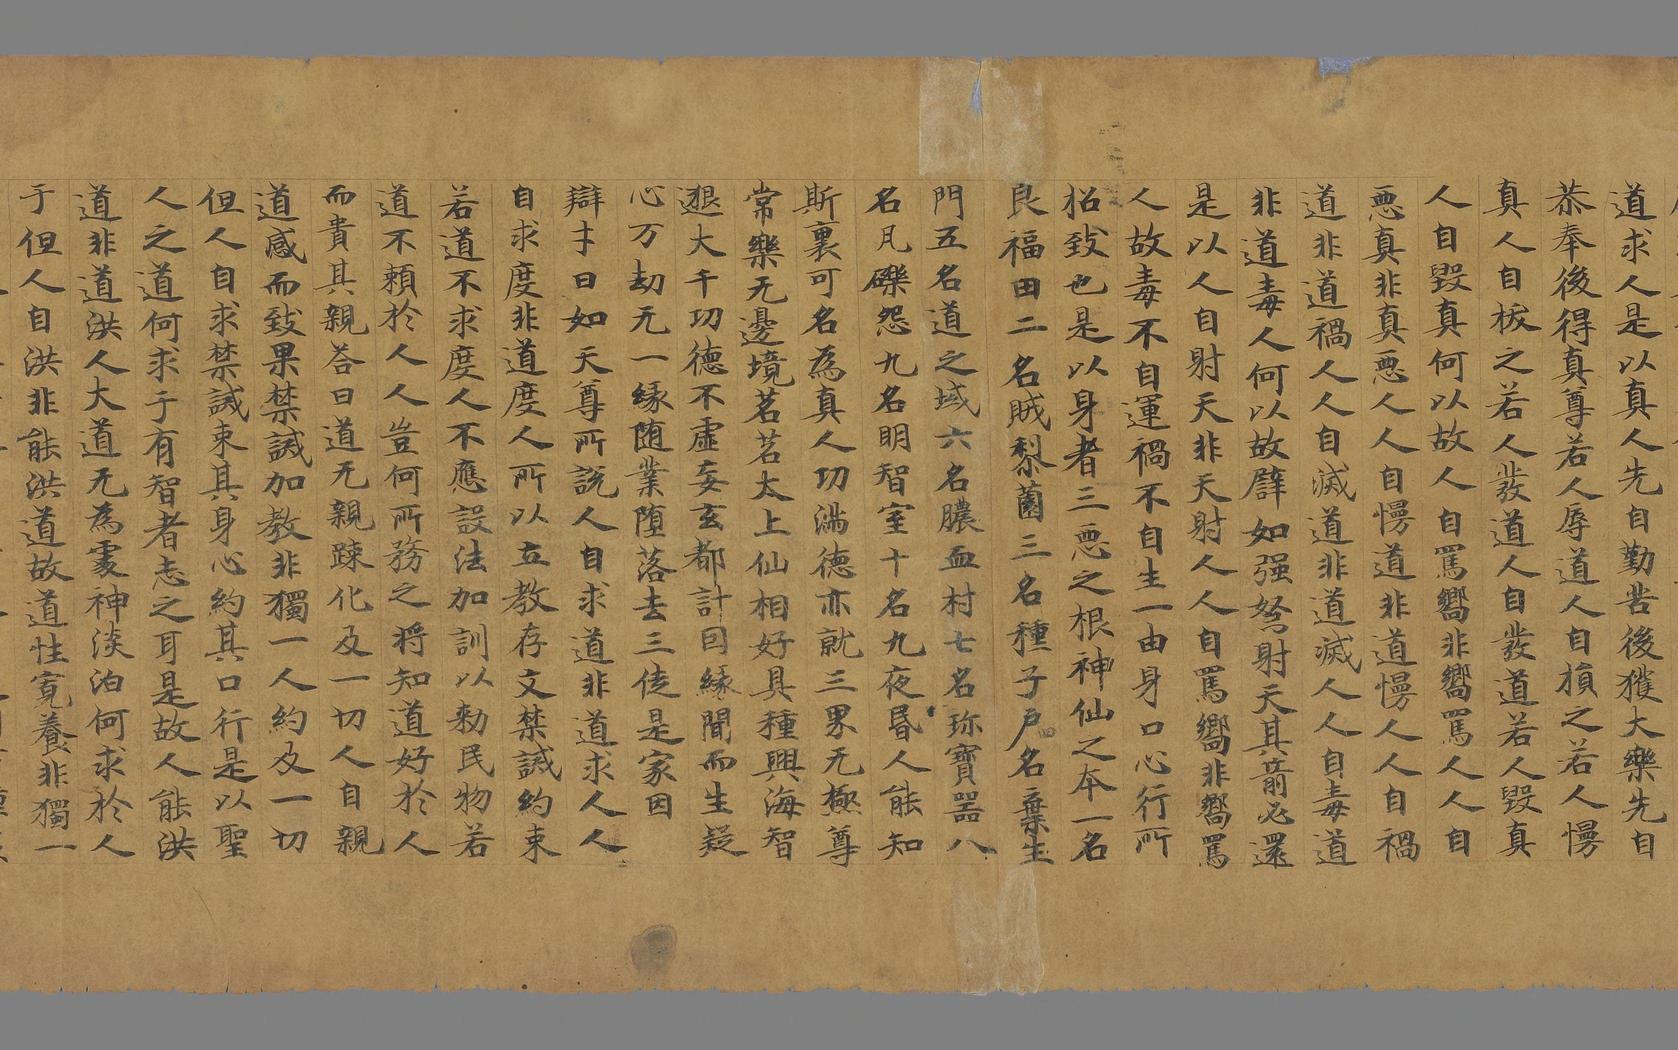 道求人是以真人先自勤苦後獲大樂先自
恭奉後得真尊若人辱道人自損之若人慢
真人自拔之若人發道人自發道若人毀真
人自毀真何以故人自罵嚮非嚮罵人人自
惡真非真惡人人自慢道非道慢人人自禍
道非道禍人人自滅道非道滅人人自毒道
非道毒人何以故譬如强弩射天其箭必還
是以人自射天非天射人人自罵嚮非嚮罵
人故毒不自運禍不自生一由身口心行所
招致也是以身者三惡之根神仙之本一名
良福田二名賊梨薗三名種子戶名棄生
門五名道之域六名膿血村七名珎寶器八
名凡礫怨九名明智室十名九夜昬人能知
斯裏可名為真人功滿德亦就三界无極尊
常樂无邊境茗茗太上仙相好具種興海智
邈大千功德不虛妄玄都計因緣聞而生疑
心万劫无一緣随業墮落去三徒是家因
辯才曰如天尊所說人自求道非道求人人
自求度非道度人所以立教存文禁誡約束
若道不求度人不應設法加訓以勑民物若
道不賴於人人豈何所務之將知道好於人
而貴其親荅曰道无親踈化及一切人自親
道感而致果禁誡加教非獨一人約及一切
但人自求禁誡束其身心約其口行是以聖
人之道何求于有智者志之耳是故人能洪
道非道洪人大道无為虛神淡泊何求於人
于但人自洪非能洪道故道性寬養非獨一